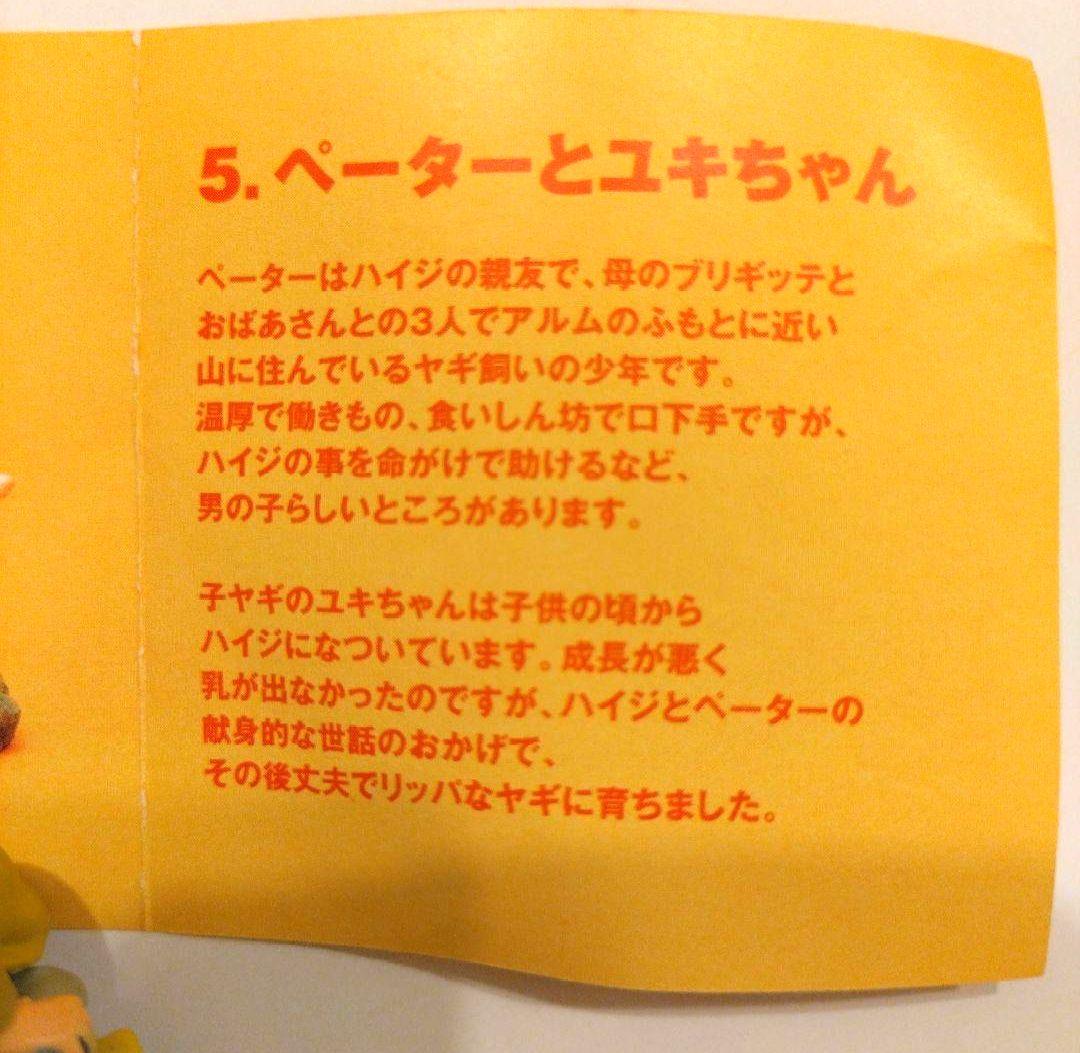 5.ペーターとユキちゃん
ペーターはハイジの親友で、母のブリギッテと
おばあさんとの3人でアルムのふもとに近い
山に住んでいるヤギ飼いの少年です。
温厚で働きもの、食いしん坊で口下手ですが、
ハイジの事を命がけで助けるなど、
男の子らしいところがあります。
子ヤギのユキちゃんは子供の頃から
ハイジになついています。成長が悪く
乳が出なかったのですが、ハイジとペーターの
献身的な世話のおかげで、
その後丈夫でリッパなヤギに育ちました。